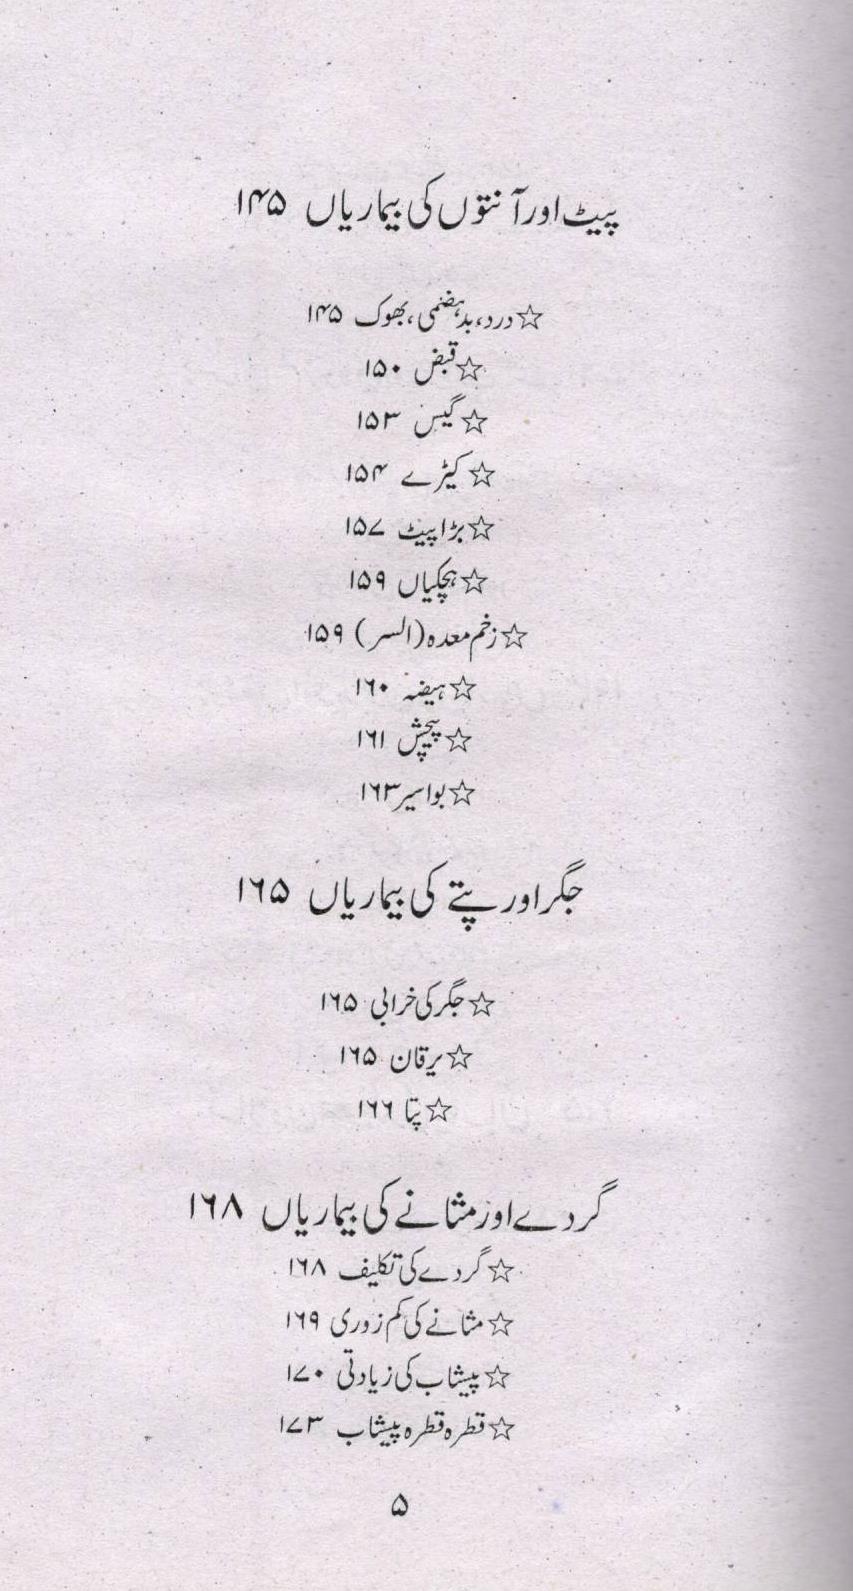 پیٹ اور آنتوں کی بیماریاں ۱۴۵
☆ درد، بدہضمی، بھوک ۱۴۵
☆ قبض ۱۵۰
☆ گیس ۱۵۳
☆ کیڑے ۱۵۴
☆ بڑا پیٹ ۱۵۷
☆ ہچکیاں ۱۵۹
☆ زخم معدہ (السر) ۱۵۹
☆ ہیضہ ۱۶۰
☆ پیچش ۱۶۱
☆ بواسیر ۱۶۳
جگر اور پتے کی بیماریاں ۱۶۵
☆ جگر کی خرابی ۱۶۵
☆ یرقان ۱۶۵
☆ پتا ۱۶۶
گردے اور مثانے کی بیماریاں ۱۶۸
☆ گردے کی تکلیف ۱۶۸
☆ مثانے کی کم زوری ۱۶۹
☆ پیشاب کی زیادتی ۱۷۰
☆ قطرہ قطرہ پیشاب ۱۷۳
۵